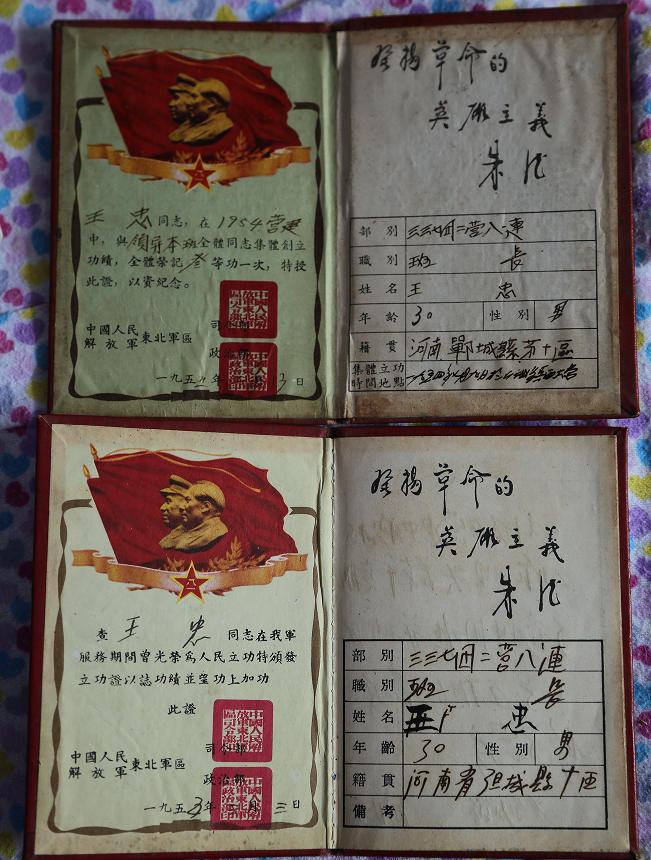 王 忠同志，在1954营建
中，與領导本班全體同志集體創立
功績，全體榮記叁等功一次，特授
此證，以資紀念。
中國人民
解放軍東北軍區
司令部
政治部
一九五 年 月3日
發揚革命的
英雄主義
朱德
部別 三三七团二营八連
職別 班長
姓名 王忠
年齡 30 性別 男
籍貫 河南鄲城縣第十區
集體立功
時間地點
八一
查 王 忠 同志在我軍
服務期間曾光榮為人民立功特頒發
立功證以誌功績並望功上加功
此證
中國人民
解放軍東北軍區
司令部
政治部
一九五3年 月三日
發揚革命的
英雄主義
朱德
部別 三三七团二营八連
職別 班長
姓名 王忠
年齡 30 性別 男
籍貫 河南省 城縣十区
備考